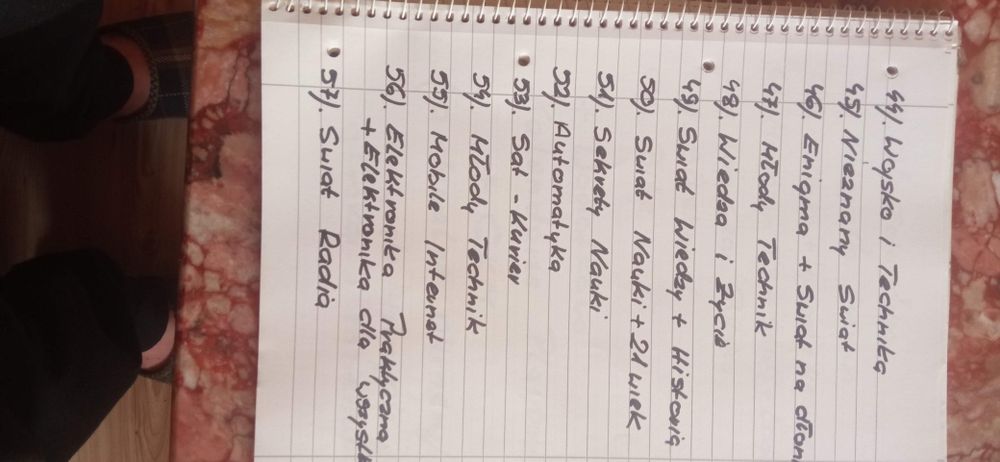 44). Wojsko i Technika
45). Nieznany Świat
46). Enigma + Świat na dłoni
47). Młody Technik
48). Wiedza i Życie
49). Świat Wiedzy + Historia
50). Świat Nauki + 21 wiek
51). Sekrety Nauki
52). Automatyka
53). Sat - Kurier
54). Młody Technik
55). Mobile Internet
56). Elektronika Praktyczna
+ Elektronika dla
57). Świat Radia